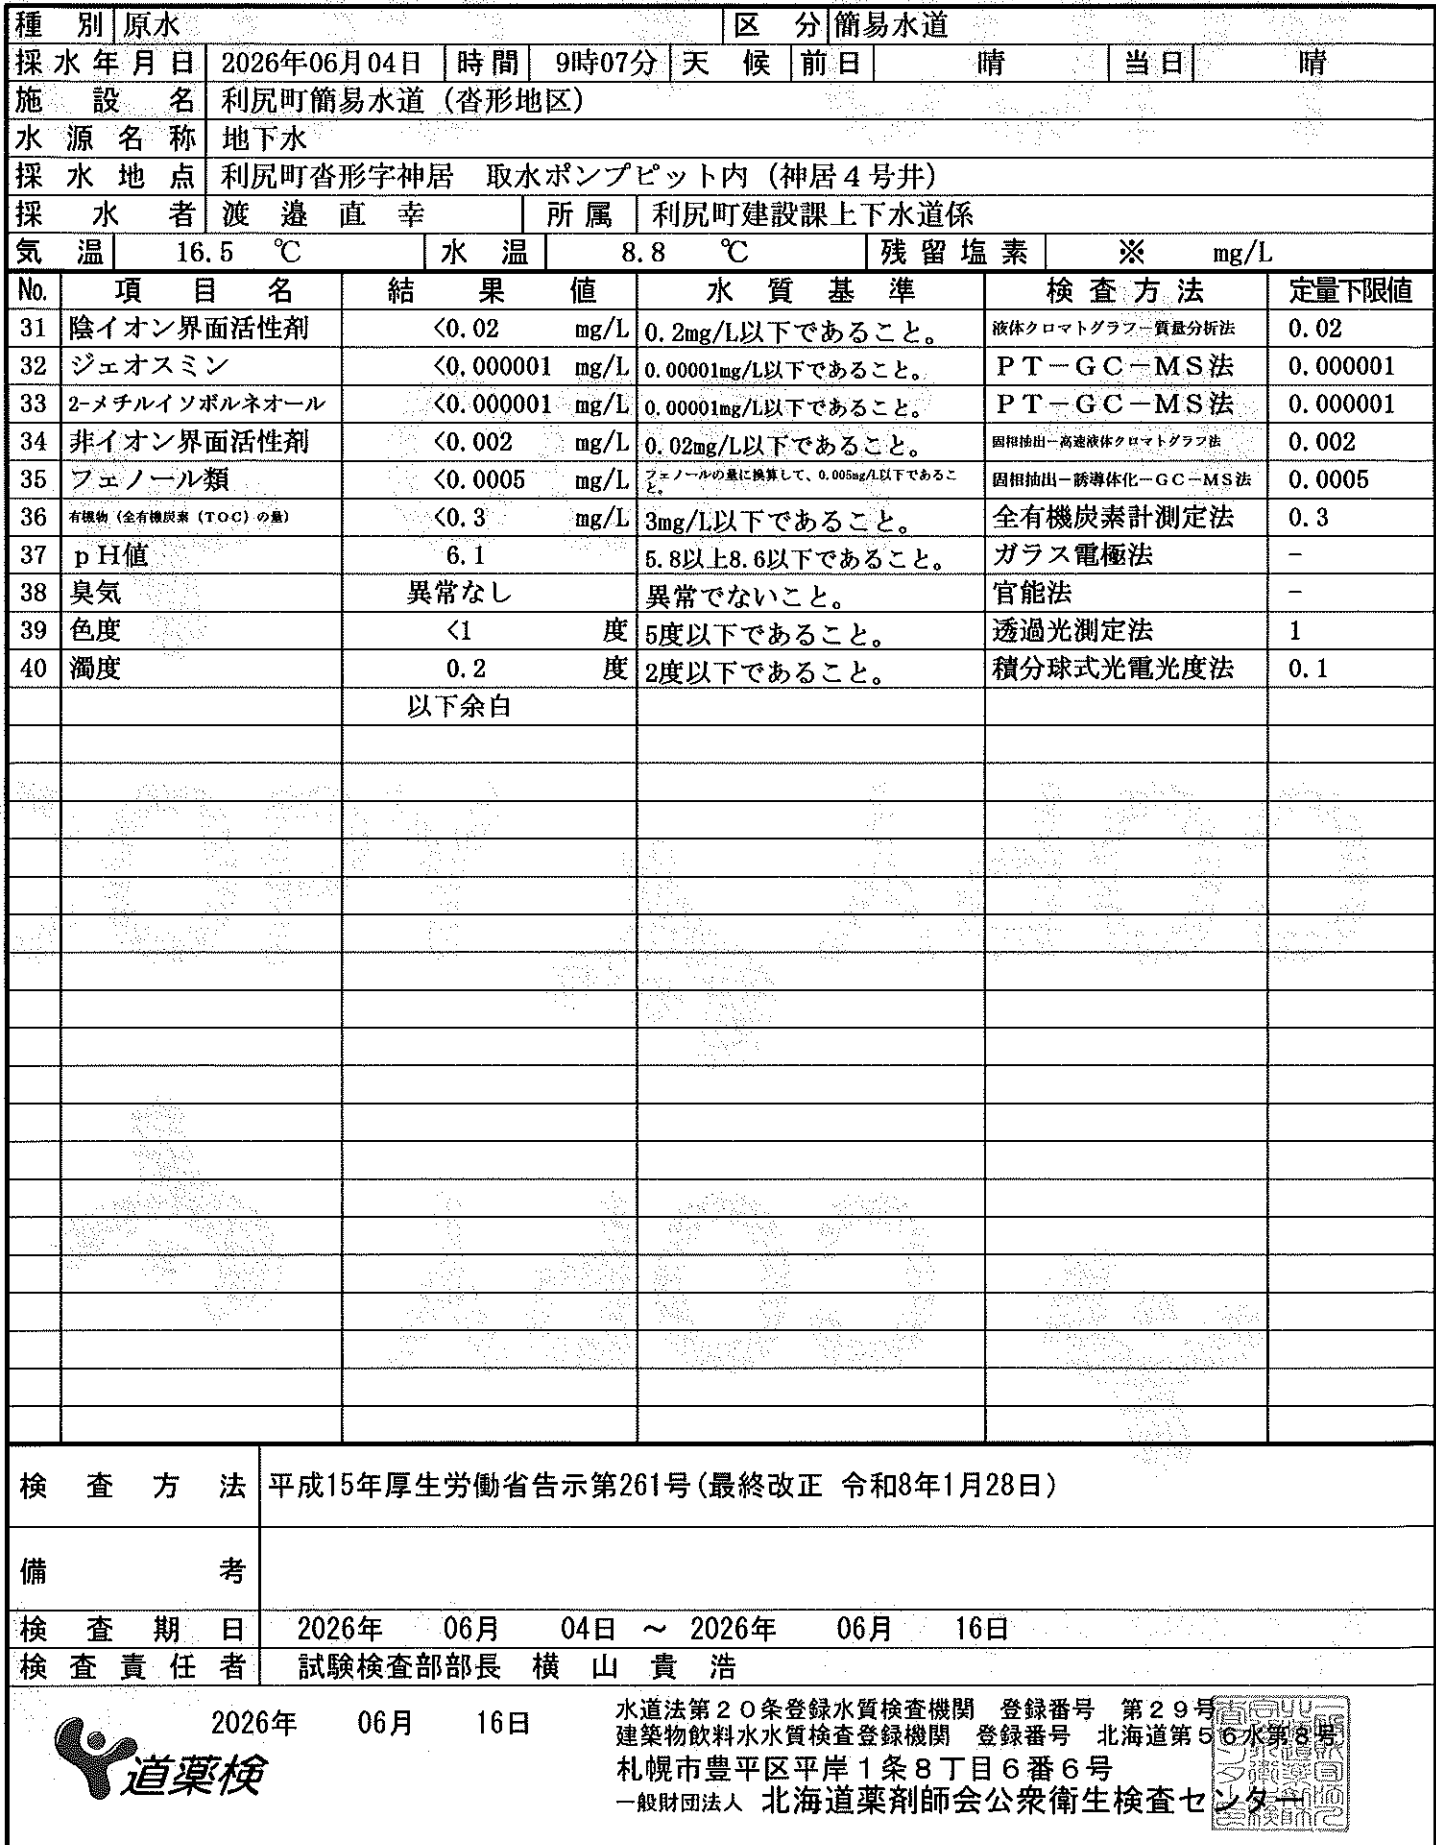 種 別 原水 区 分 簡易水道
採水年月日 2026年06月04日 時間 9時07分 天 候 前日 晴 当日 晴
施 設 名 利尻町簡易水道（沓形地区）
水 源 名 称 地下水
採 水 地 点 利尻町沓形字神居 取水ポンプピット内（神居４号井）
採 水 者 渡 邉 直 幸 所属 利尻町建設課上下水道係
気 温 16.5 ℃ 水 温 8.8 ℃ 残留塩素 ※ mg/L
No. 項 目 名 結 果 値 水 質 基 準 検査方法 定量下限値
31 陰イオン界面活性剤 <0.02 mg/L 0.2mg/L以下であること。 液体クロマトグラフ－質量分析法 0.02
32 ジェオスミン <0.000001 mg/L 0.00001mg/L以下であること。 ＰＴ－ＧＣ－ＭＳ法 0.000001
33 2-メチルイソボルネオール <0.000001 mg/L 0.00001mg/L以下であること。 ＰＴ－ＧＣ－ＭＳ法 0.000001
34 非イオン界面活性剤 <0.002 mg/L 0.02mg/L以下であること。 固相抽出－高速液体クロマトグラフ法 0.002
35 フェノール類 <0.0005 mg/L フェノールの量に換算して、0.005mg/L以下であること。 固相抽出－誘導体化－ＧＣ－ＭＳ法 0.0005
36 有機物（全有機炭素（ＴＯＣ）の量） <0.3 mg/L 3mg/L以下であること。 全有機炭素計測定法 0.3
37 ｐＨ値 6.1 5.8以上8.6以下であること。 ガラス電極法 －
38 臭気 異常なし 異常でないこと。 官能法 －
39 色度 <1 度 5度以下であること。 透過光測定法 1
40 濁度 0.2 度 2度以下であること。 積分球式光電光度法 0.1
以下余白
検 査 方 法 平成15年厚生労働省告示第261号(最終改正 令和8年1月28日)
備 考
検 査 期 日 2026年 06月 04日 ～ 2026年 06月 16日
検査責任者 試験検査部部長 横 山 貴 浩
2026年 06月 16日
道薬検
水道法第２０条登録水質検査機関 登録番号 第２９号
建築物飲料水水質検査登録機関 登録番号 北海道第５６水第８号
札幌市豊平区平岸１条８丁目６番６号
一般財団法人 北海道薬剤師会公衆衛生検査センター